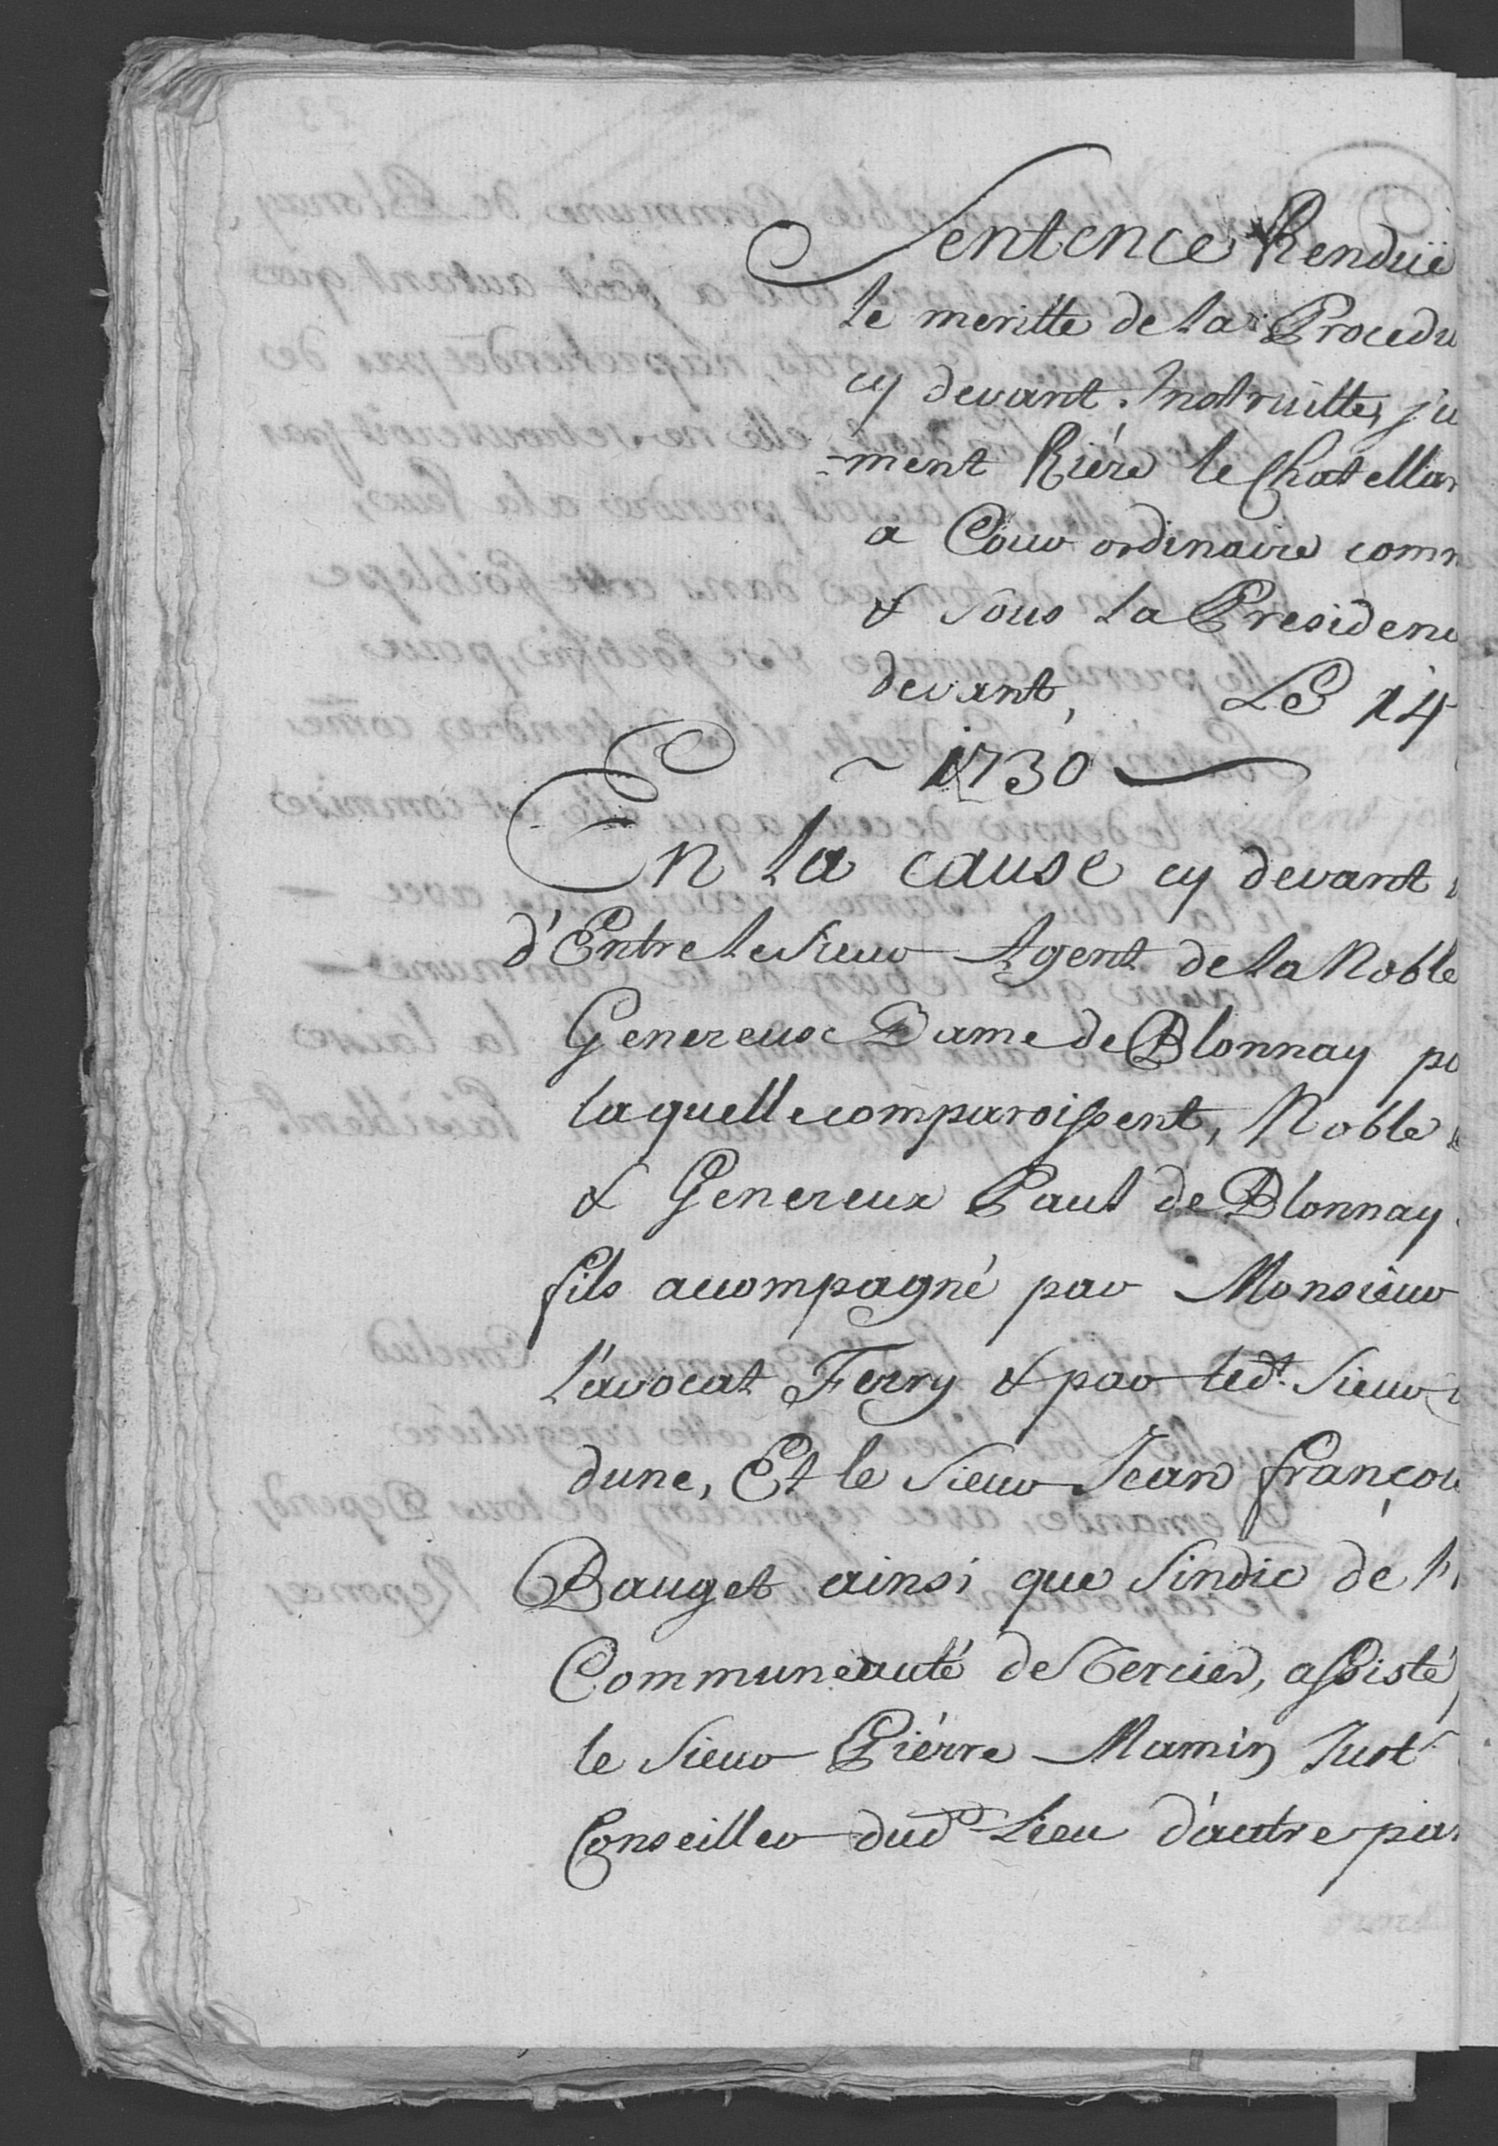 Sentence Renduë
le meritte de la Procedu
cy devant Instruitte, ju
-ment Riére le Chatellar
a Cour ordinaire comm
& sous la Presidenc
devant, Le 14
~ 1730
En la cause cy devant
d'Entre le Sieur Agent de la Noble
Genereuse Dame de Blonnay po
laquelle comparoissent, Noble
& Genereux Paul de Blonnay
fils accompagné par Monsieur
l'avocat Ferry & par led.t Sieur
dune, Et le Sieur Jean françoi
Bauget ainsi que Sindic de l'
Communeauté de Tercier, assisté
le Sieur Piérre Mamin Just
Conseiller dud Lieu d'autre par